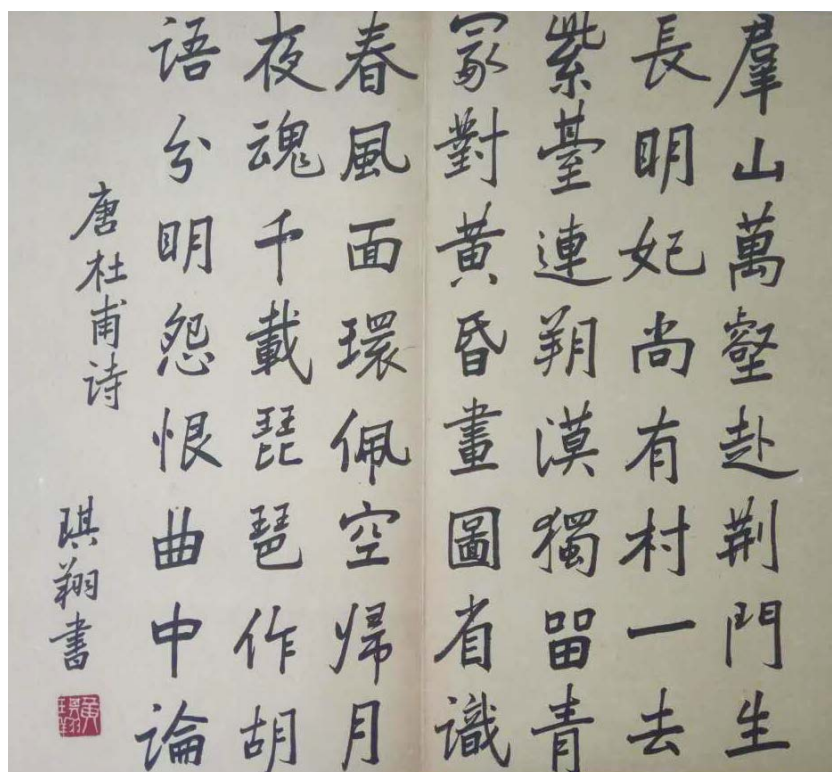 羣山萬壑赴荆門生
長明妃尚有村一去
紫臺連朔漠獨留青
冢對黃昏畫圖省識
春風面環佩空歸月
夜魂千載琵琶作胡
语分明怨恨曲中論
唐杜甫诗
琪翔书
黄琪翔